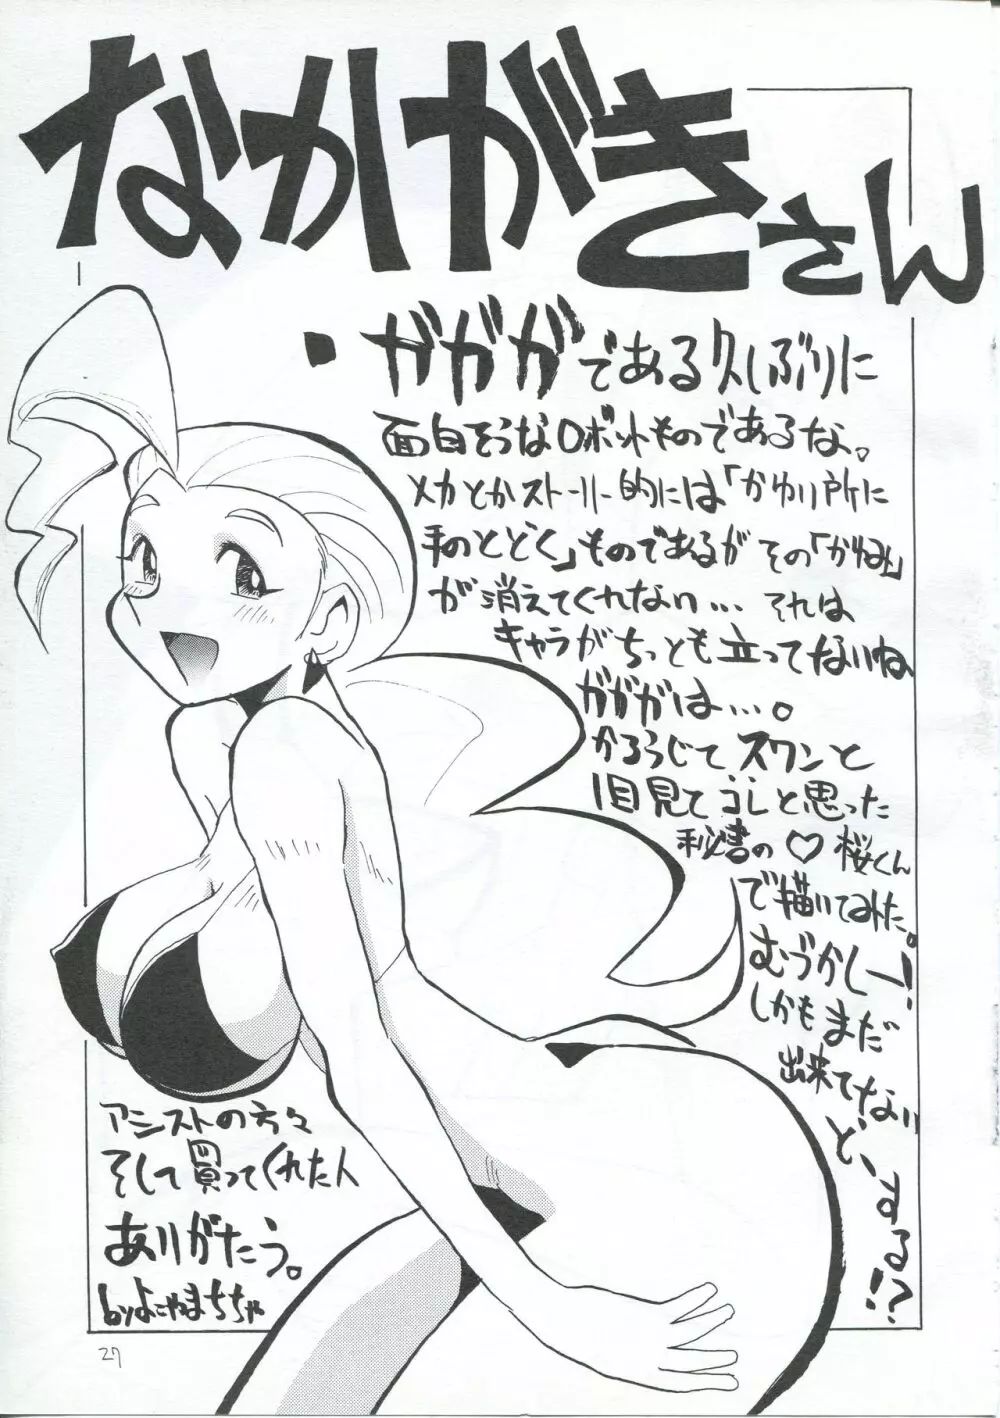 なかがきさん
・ガガガである久しぶりに
面白そうなロボットものであるな。
メカとかストーリー的には「かゆい所に
手のとどく」ものであるがその「かゆみ」
が消えてくれない...それは
キャラがちっとも立ってないね
ガガガは...。
かろうじて、スワンと
1目見てゴレと思った
秘書の♡桜くん
で描いてみた。
むづかしー!
しかもまだ
出来てない
ど、する!?
アシストの方々
そして買ってくれた人
ありがたう。
byよこやまちちゃ
27